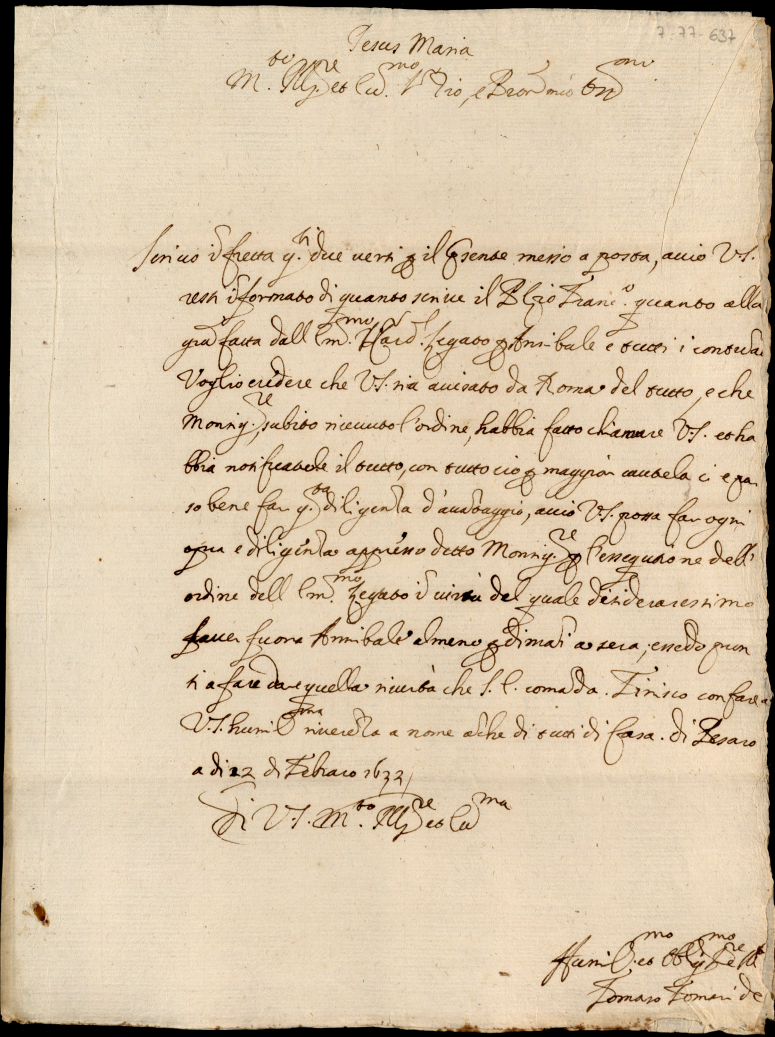 7-77-637
Jesus Maria
M.to Ill.re et Ecc.mo S.r Zio, e Pron mio Oss.mo
Scrivo ĩ fretta q.ti due versi p il pñsente messo a posta, acciò V.S.
resti ĩformato di quanto scrive il P. Zio Franc.o quanto alla
gra fatta dall' Em.mo S.r Card. Legato p Annibale e tutti i
Voglio credere che V.S. sia avisato da Roma del tutto, e che
Monsig.re, subito ricevuto l'ordine, habbia fatto chiamare V.S. et ha
bbia notificatole il tutto, con tutto ciò p maggior cautela ci è par
so bene far q.ta diligenza d'avãtaggio, acciò V.S. possa far ogni
opra e diligẽza appresso detto Monsig.re p l'essequtione dell'
ordine dell' Em.mo Legato ĩ virtù del quale desideraressimo
haver fuora Annibale almeno p dimani a sera; essẽdo pron
ti a fare quella sicurtà che S.E. comãda. Finisco con fare a
V.S. humil.ma riverẽza a nome ãche di tutti di Casa. di Pesaro
a di 22 di Febraro 1632
Di V.S. M.to Ill.re et Ecc.ma
Humil.mo et Obblig.mo
Tomaso Tomasi de